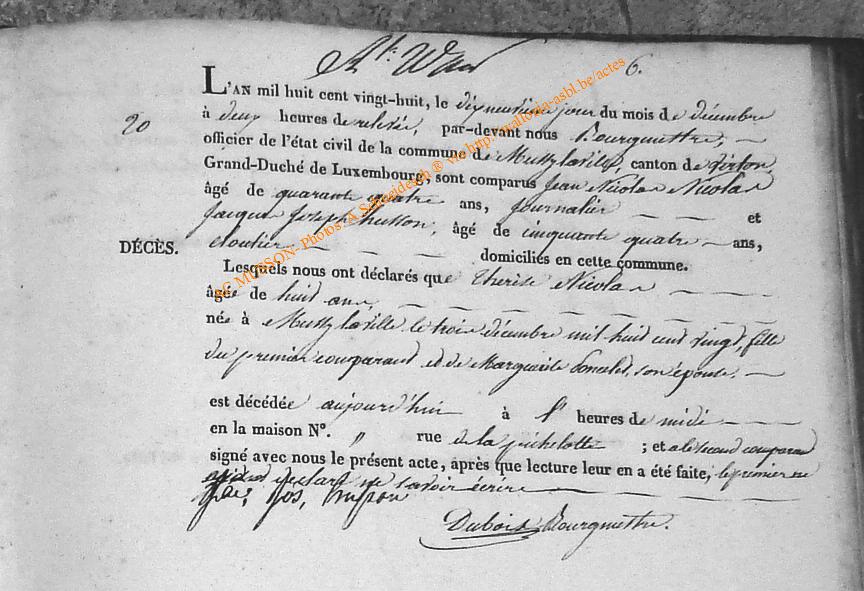 6.
20
L'AN mil huit cent vingt-huit, le dix neuvième jour du mois de décembre
à deux heures de relevée, par-devant nous Bourgmettre,
officier de l'état civil de la commune de Mussy laville, canton de Virton,
Grand-Duché de Luxembourg, sont comparus Jean Nicolas Nicolas
âgé de quarante quatre ans, Journalier et
Jacques Joseph husson, âgé de cinquante quatre ans,
DÉCÈS.
cloutier domiciliés en cette commune.
Lesquels nous ont déclarés que Therese Nicolas
âgée de huit ans,
née à Mussy laville le trois décembre mil huit cent vingt, fille
du premier comparant et de Marguerite Poncelet, son épouse,
est décédée aujourd'hui à heures de midi
en la maison N°. " rue de la pichelotte ; et a le second comparant
signé avec nous le présent acte, après que lecture leur en a été faite, le premier
declaré ne savoir écrire
jac, jos, husson
Dubois Bourgmettre.
AC MUSSON- Photos: A Schneidesch ® vie http:\\wallonia-asbl.be/actes